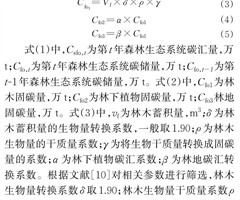 C_fo₁ = V₁×δ×ρ×γ (3)
C_fo2 = α×C_fo1 (4)
C_fo3 = β×C_fo1 (5)
式(1)中,C_sfo,t为第t年森林生态系统碳汇量,万
t;C_fo,t为第t年森林生态系统碳储量,万t;C_fo,t−1为第
t-1年森林生态系统碳储量,万t。式(2)中,C_fo1为林
木固碳量,万t;C_fo2为林下植物固碳量,万t;C_fo3林地
固碳量,万t。式(3)中,v₁为林木蓄积量,m³;δ为林
木蓄积量的生物量转换系数,一般取1.90;ρ为林木
生物量的干质量系数;γ为将生物干质量转换成固碳
量的系数;α为林下植物碳汇系数;β为林地碳汇转
换系数。根据文献[10]对相关参数进行筛选,林木
生物量转换系数δ取1.90;林木生物量干质量系数ρ